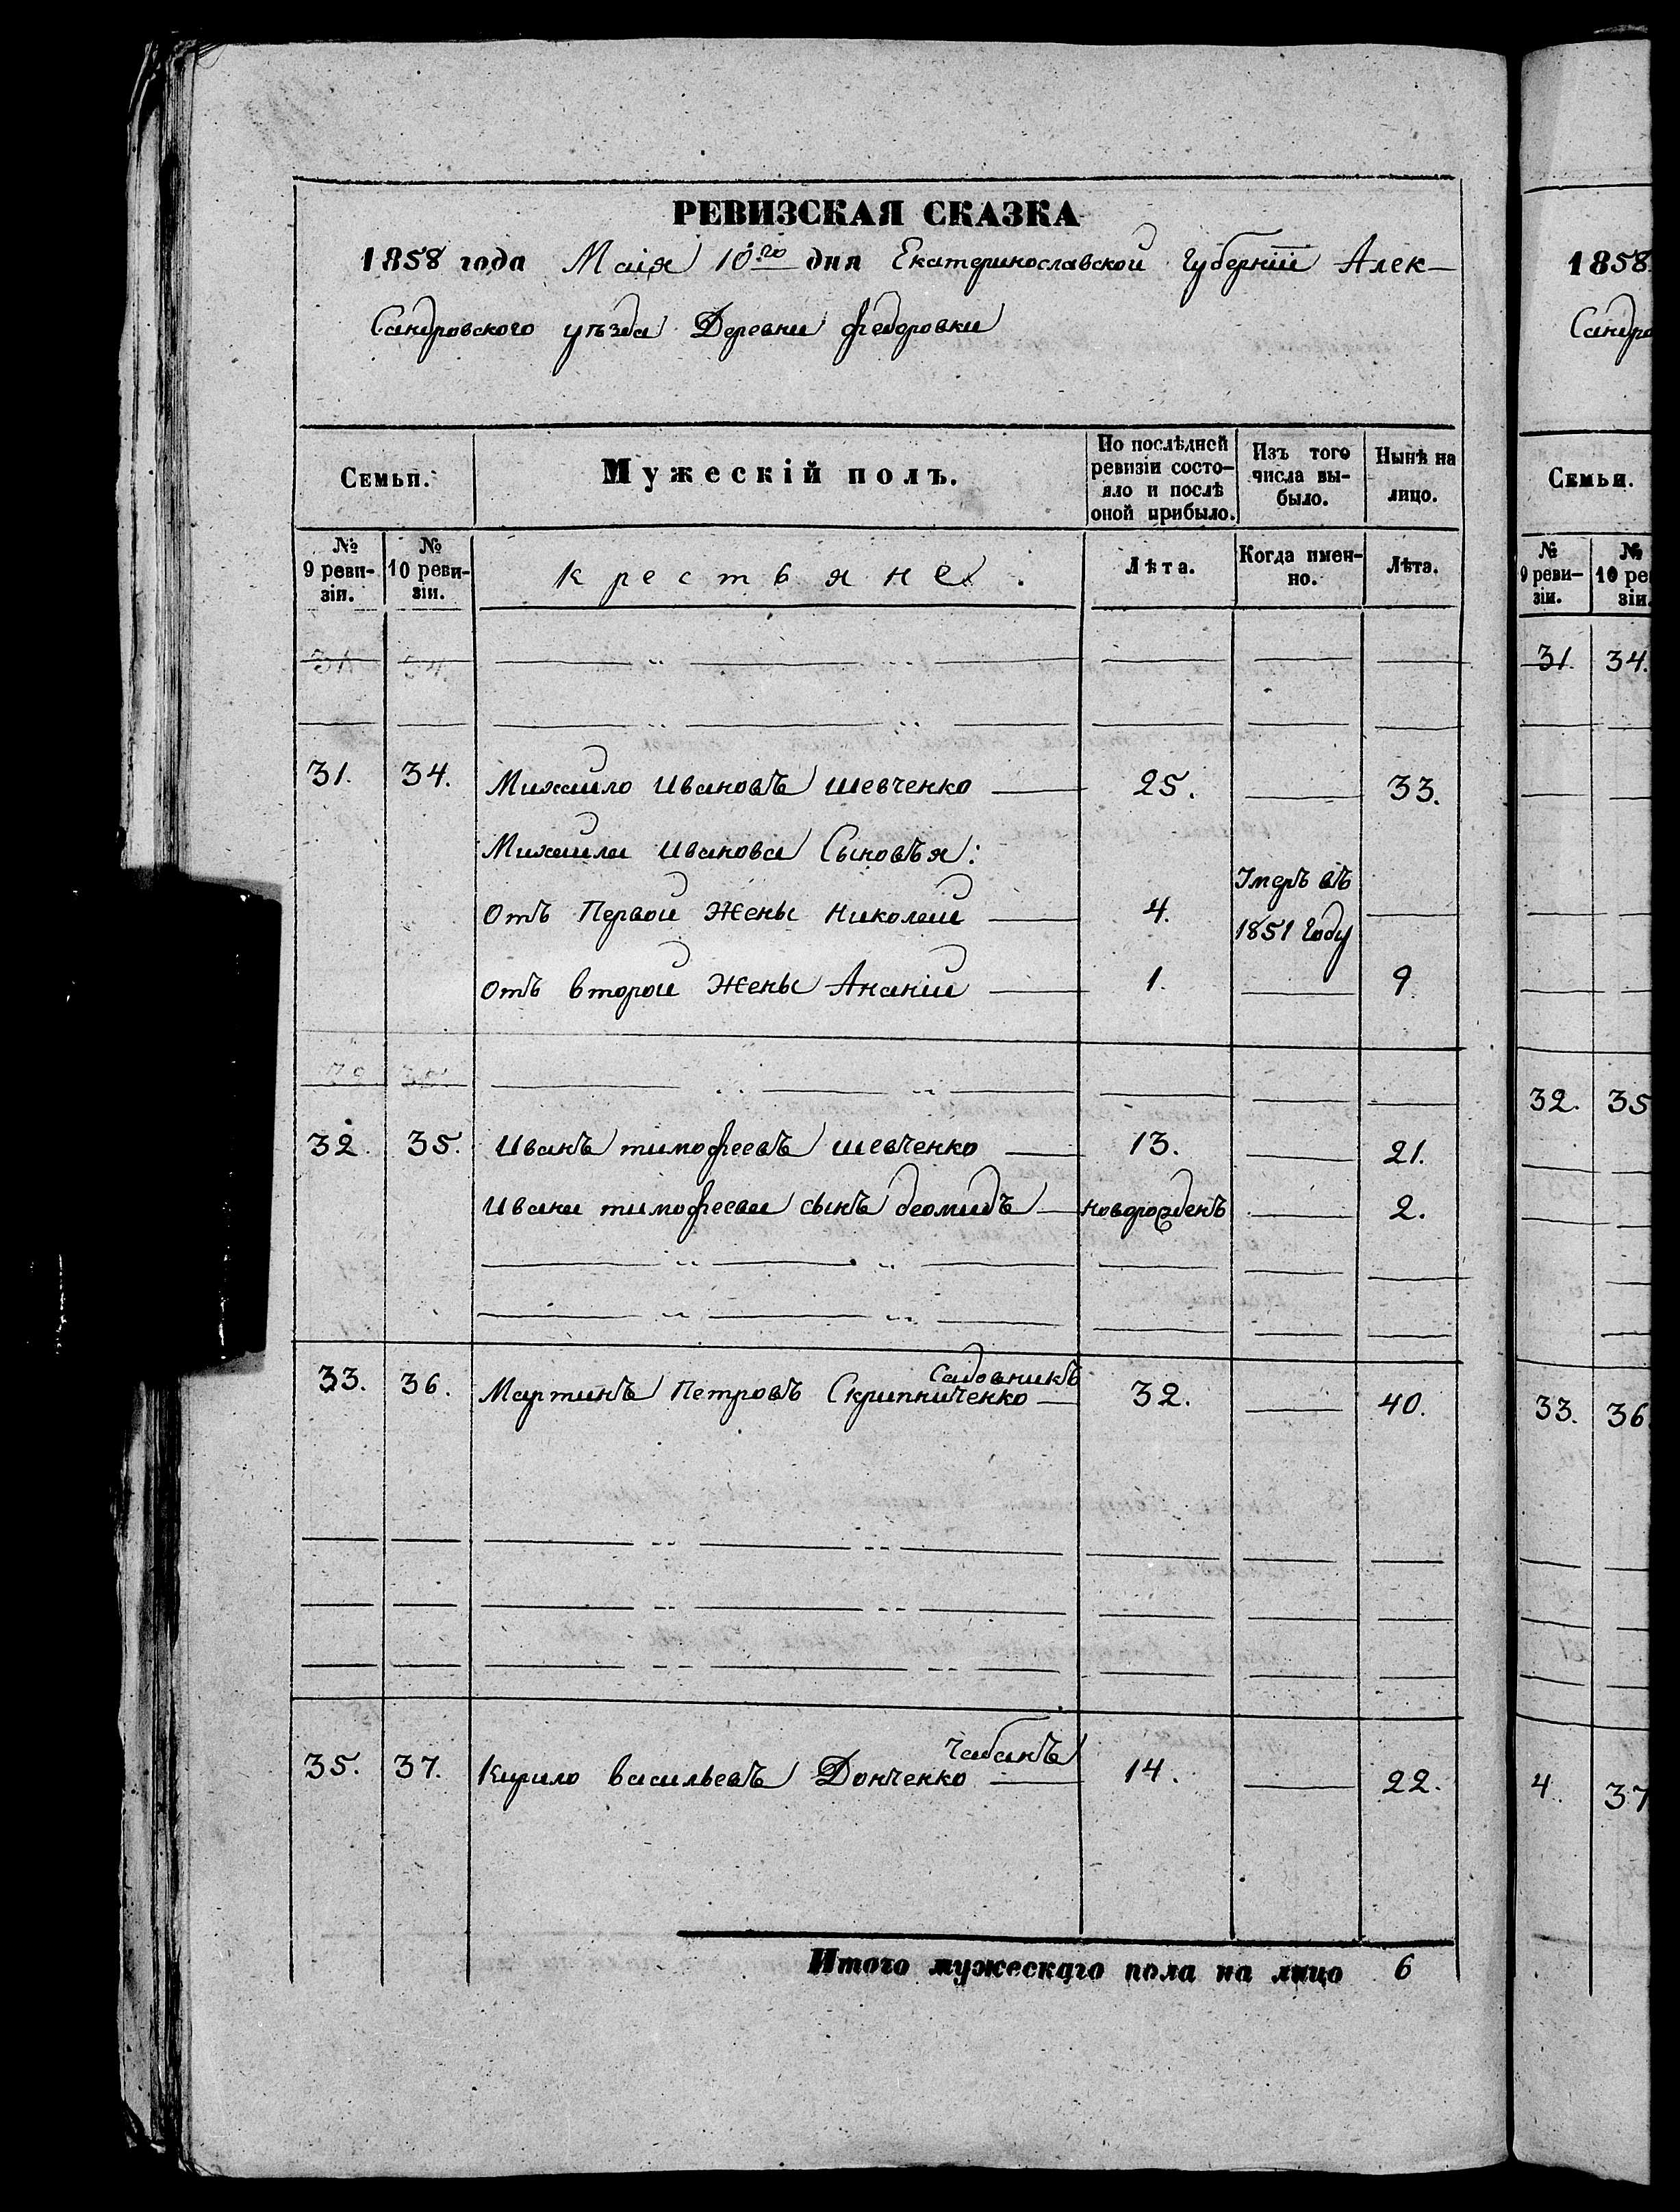 РЕВИЗСКАЯ СКАЗКА
1858 года Маія 10го дня Екатеринославской Губерніи Алек-
Сандровского уѣзда Деревни Федоровки
Семьи.
Мужескій полъ.
По послѣдней ревизіи состо-
яло и послѣ оной прибыло.
Изъ того числа вы-
было.
Нынѣ на лицо.
№ 9 реви-
зіи.
№ 10 реви-
зіи.
крестьяне.
Лѣта.
Когда имен-
но.
Лѣта.
31. 34. Михайло Ивановъ Шевченко 25. 33.
Михайла Иванова Сыновъя:
Отъ Первой Жены Николай 4. Умеръ въ 1851 Году
Отъ второй Жены Ананій 1. 9.
32. 35. Иванъ тимофеевъ шевченко 13. 21.
Ивана тимофеева сынъ деомидъ новорожденъ 2.
Садовникъ
33. 36. Мартинъ Петровъ Скрипниченко 32. 40.
Чабанъ
35. 37. Кирило васильевъ Донченко 14. 22.
Итого мужескаго пола на лицо 6
1858
Сандро
Семьи.
№ 9 реви-
зіи.
№ 10 ре
зіи.
31. 34.
32. 35
33. 36
4. 37